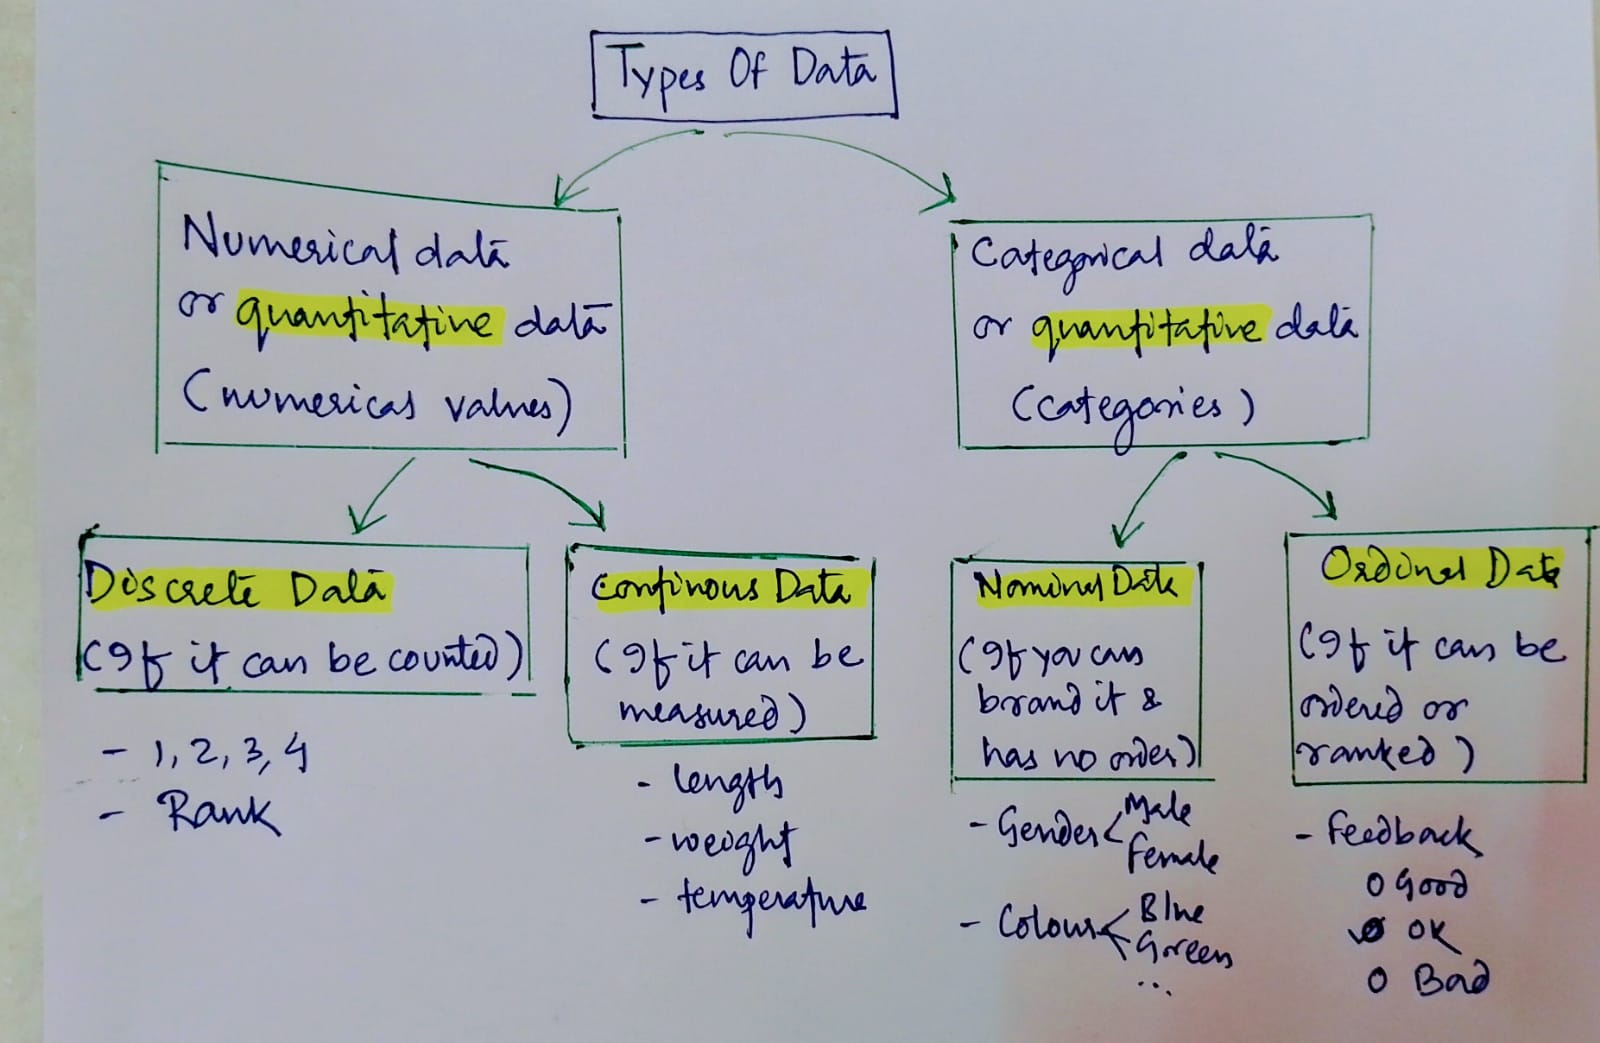 Types Of Data
Numerical data
or quantitative data
(numerical values)
Categorical data
or quantitative data
(categories)
Discrete Data
(If it can be counted)
- 1, 2, 3, 4
- Rank
Continous Data
(If it can be
measured)
- length
- weight
- temperature
Nominal Data
(If you can
brand it &
has no order)
- Gender < Male
Female
- Colour < Blue
Green
...
Ordinal Data
(If it can be
ordered or
ranked)
- Feedback
O Good
O OK
O Bad